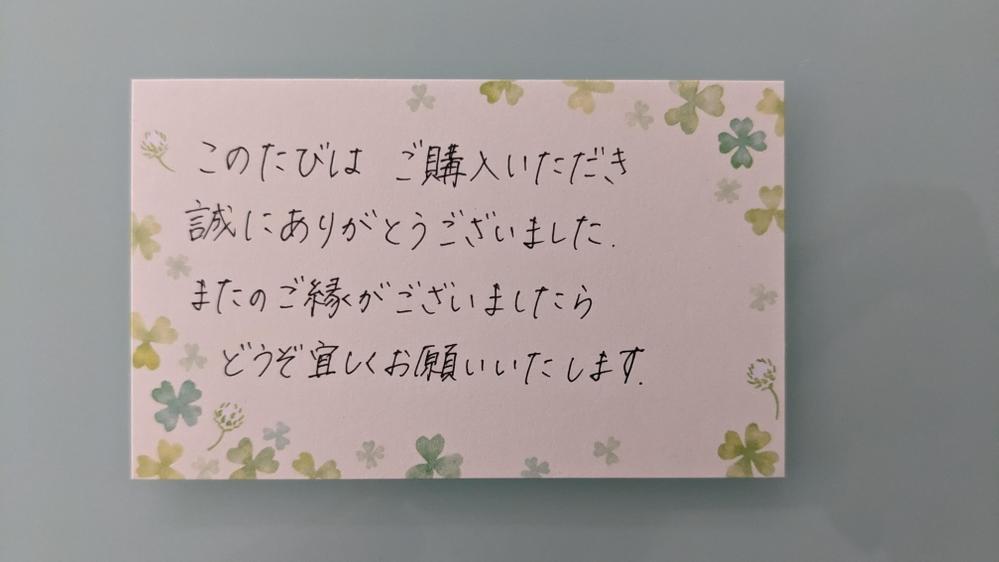 このたびは ご購入いただき
誠にありがとうございました.
またのご縁がございましたら
どうぞ宜しくお願いいたします.